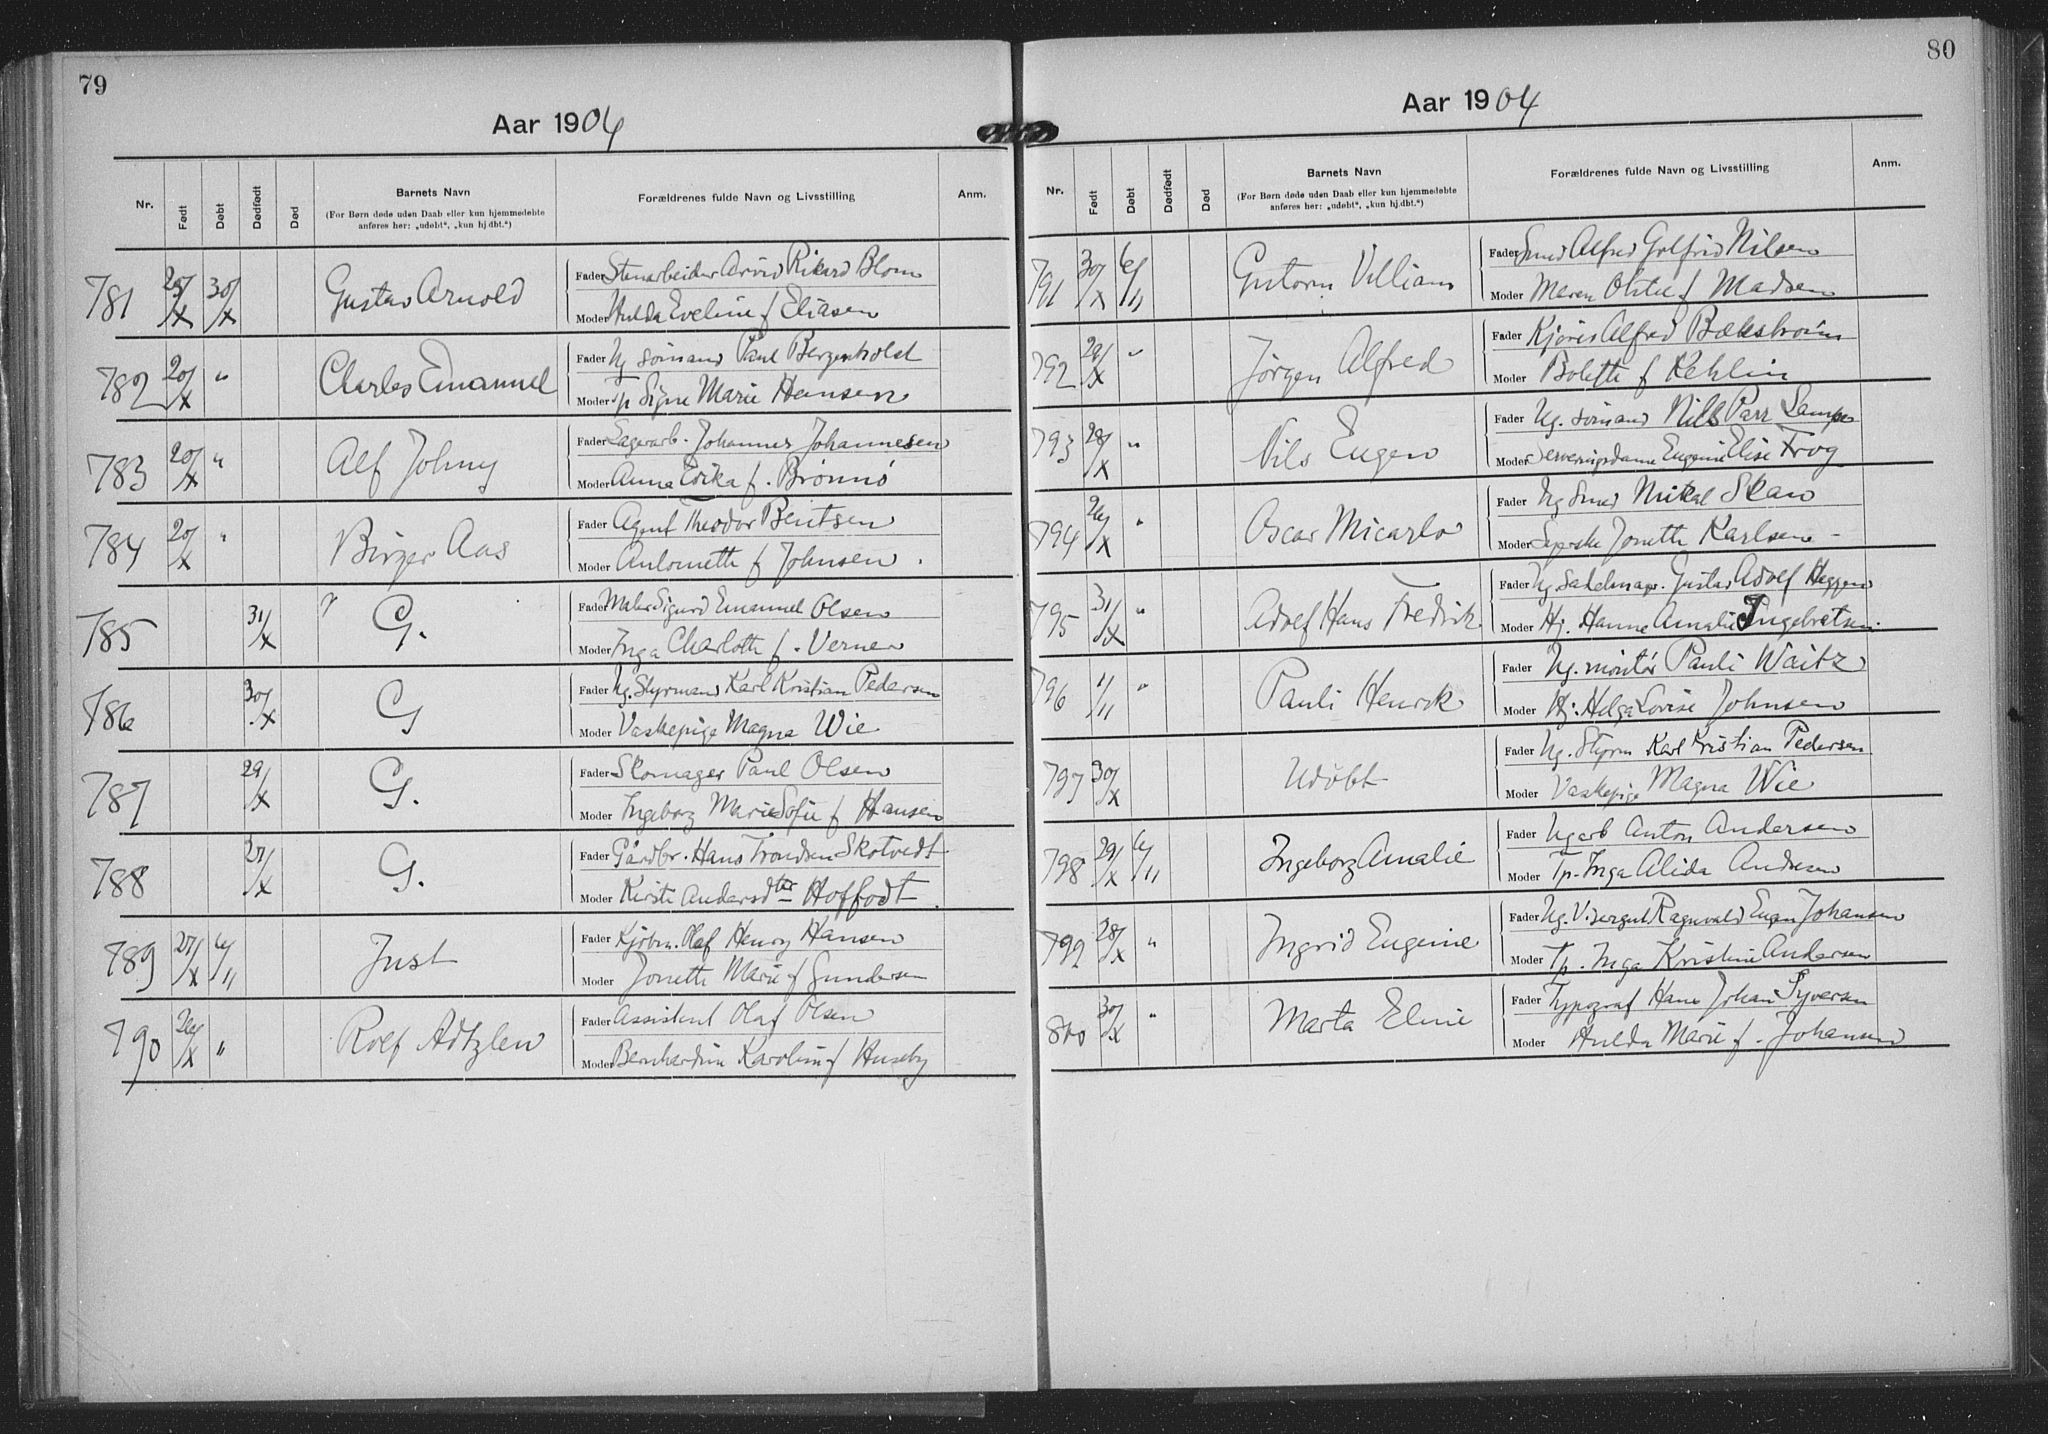 79
Aar 1904
Nr.
Født
Døbt
Dødfødt
Død
Barnets Navn
(For Børn døde uden Daab eller kun hjemmedøbte
anføres her: „udøbt“, „kun hj.dbt.“)
Forældrenes fulde Navn og Livsstilling
Anm.
Fader Stenarbeider Arvid Rikard Blom
781 28/X 30/X Gustav Arnold
Moder Hulda Eveline f Eliasen
Fader Ug sömand Paul Bergenholst
782 20/X " Charles Emanuel
Moder Tp Signe Marie Hansen
Fader Lagerarb. Johannes Johannesen
783 20/X " Alf Johny
Moder Anna Erika f. Brönnö
Fader Agent Theodor Bentsen
784 20/X " Birger Aas
Moder Antonette f Johnsen .
Fader Maler Sigurd Emanuel Olsen
785 31/X G.
Moder Inga Charlotte f. Verner
Fader Ug. Styrmand Karl Kristian Pedersen
786 30/X G
Moder Vaskepige Magna Wie
Fader Skomager Paul Olsen
787 29/X G.
Moder Ingeborg Marie Sofie f Hansen
Fader Gårdbr. Hans Trondsen Skotvedt
788 27/X G.
Moder Kirsti Andersdtr Hoffodt
Fader Kjöbm. Olaf Henry Hansen
789 27/X 6/11 Just
Moder Jonette Marie f Gundersen
Fader Assistent Olaf Olsen
790 26/X " Rolf Adtzlen
Moder Bernhardine Karoline f Huseby
80
Aar 1904
Nr.
Født
Døbt
Dødfødt
Død
Barnets Navn
(For Børn døde uden Daab eller kun hjemmedøbte
anføres her: „udøbt“, „kun hj.dbt.“)
Forældrenes fulde Navn og Livsstilling
Anm.
Fader Smed Alfred Golfrid Nilsen
791 30/X 6/11 Gutorm Villiam
Moder Maren Olstie f Madsen
Fader Kjörer Alfred Bækström
792 29/X " Jörgen Alfred
Moder Bolette f Kehlin
Fader Ug. sömand Nils Parr Lampe
793 28/X " Nils Eugen
Moder Serveringsdame Eugenie Elise Frog
Fader Ug Smed Mikal Skau
794 26/X " Oscar Micarlo
Moder Syerske Jonette Karlsen -
Fader Ug Sadelmag. Gustav Adolf Heggen
795 31/X " Adolf Hans Fredrik
Moder Hj. Hanne Amalie Ingebretsen.
Fader Ug. montör Pauli Waitz
796 1/11 " Pauli Henrik
Moder Hj. Helga Lovise Johnsen
Fader Ug. Styrm Karl Kristian Pedersen
797 30/X Udöbt
Moder Vaskepige Magna Wie
Fader Ug arb Anton Andersen
798 29/X 6/11 Ingeborg Amalie
Moder Tp. Inga Alida Andresen
Fader Ug. V.sergent Ragnvald Eugen Johansen
799 28/X " Ingrid Eugenie
Moder Tp. Inga Kristine Andersen
Fader Typograf Hans Johan Syversen
800 30/X " Marta Eline
Moder Hulda Marie f. Johansen